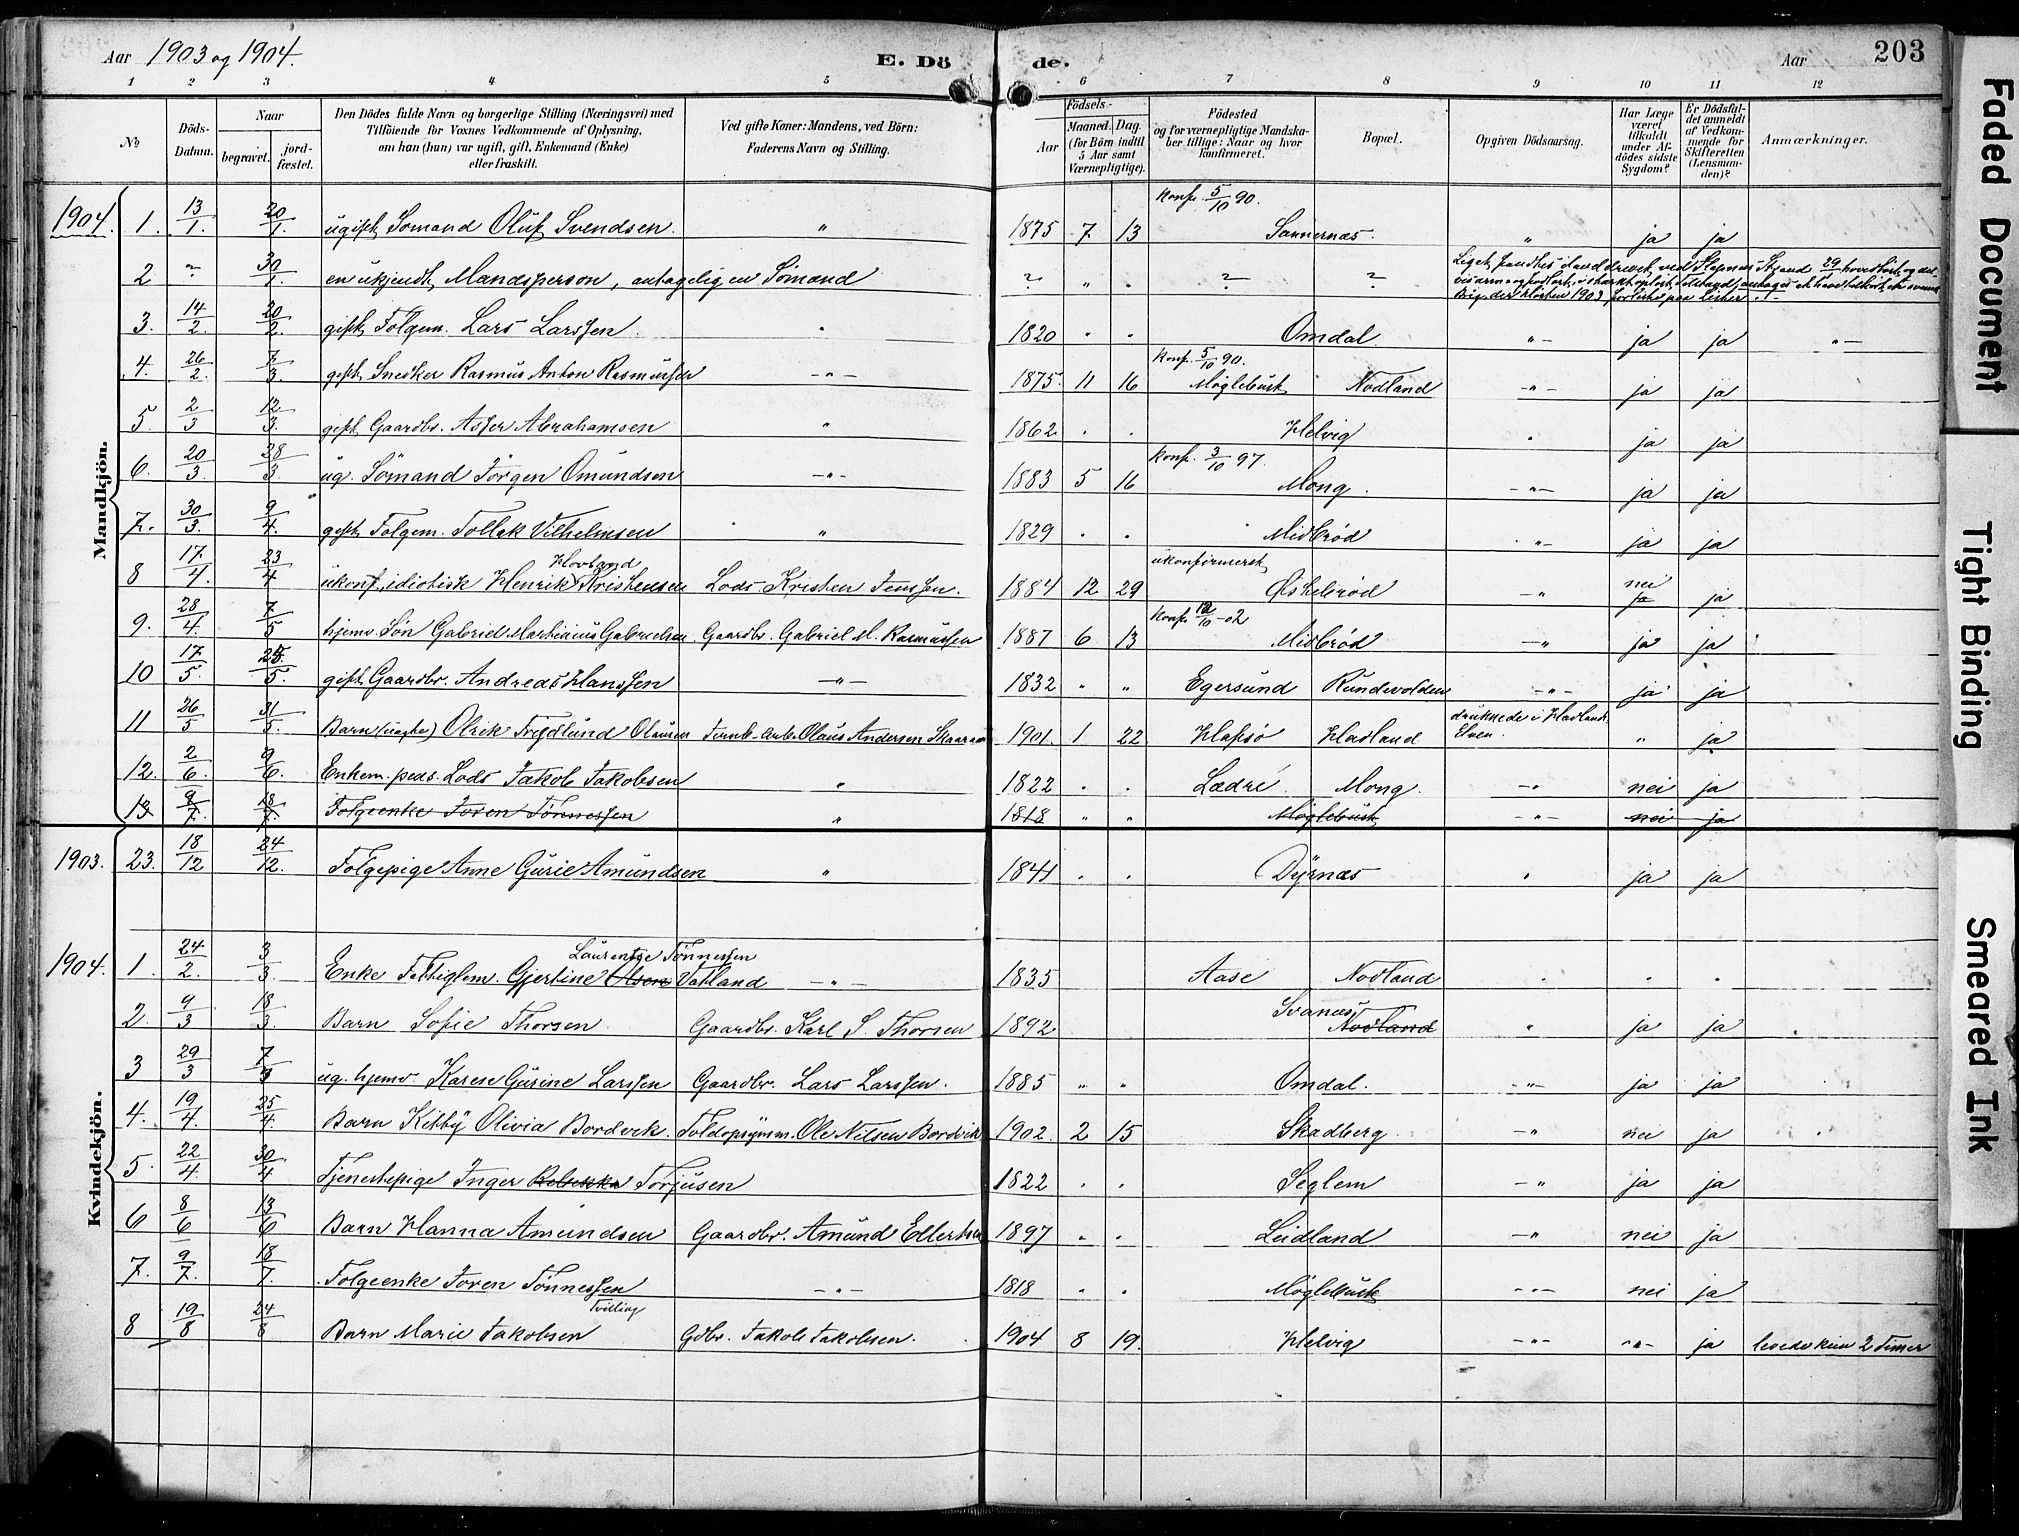 Aar 1903 og 1904. E. Dö de. Aar 203
1 2 3 4 5 6 7 8 9 10 11 12
No
Döds-Datum.
Naar
begravet. jordfæstet.
Den Dödes fulde Navn og borgerlige Stilling (Næringsvei) med
Tilföiende for Voxnes Vedkommende af Oplysning,
om han (hun) var ugift, gift, Enkemand (Enke)
eller fraskilt.
Ved gifte Koner: Mandens, ved Börn:
Faderens Navn og Stilling.
Födsels-
Aar Maaned. Dag.
(for Börn indtil
5 Aar samt
Værnepligtige).
Födested
og for værnepligtige Mandskaber tillige: Naar og hvor
konfirmeret.
Bopæl.
Opgiven Dödsaarsag.
Har Læge været tilkaldt under Afdödes sidste Sygdom?
Er Dödsfaldet anmeldt af Vedkommende for Skifteretten (Lensmanden)?
Anmærkninger.
Mandkjön.
Konf. 5/10 90.
1904. 1. 13/1. 20/1. ugift Sömand Oluf Svendsen. " 1875 7 13 Sannernæs. " ja ja
2 ~ 30/1. en ukjendt Mandsperson, antagelig en Sömand ~ " " ~ ~ Liget fandtes ved Stapnes Strand 29
3. 14/2. 20/2. gift Folgem. Lars Larssen. " 1820 " " Omdal. " ja ja "
Konf. 5/10 90.
4. 26/2. 7/3. gift Snedker Rasmus Anton Rasmussen " 1875. 11 16 Møglebust Nodland " ja ja
5 2/3 12/3. gift Gaardbr. Asser Abrahamsen " 1862. " " Helvig " ja ja
Konf. 3/10 97.
6. 20/3. 28/3 ug. Sömand Jörgen Omundsen " 1883 5 16 Mong. " ja ja
7. 30/3. 9/4. gift Folgem. Tollak Vilhelmsen " 1829 " " Midbrød " ja ja
Hovland ukonfirmeret
8 17/4. 23/4 ukonf. idiotisk Henrik Kristensen Lods Kristen Jenssen. 1884 12 29 Øiskebrød " nei ja ja
Konf. 12/10 -02
9. 28/4. 7/5 hjemv. Søn Gabriel Martinius Gabrielsen Gaardbr. Gabriel M. Rasmussen 1887 6 13 Midbrød " ja ja
10 17/5. 25/5. gift Gaardbr. Andreas Hanssen " 1832 " " Egersund Rundevolden " ja ja
11 26/5 31/5. Barn (uægte) Olrik Fridlund Olausen Olaus Andersen 1901. 1 22 Hafsø Hadland druknede i Hadlands Elven. " ja
12. 2/6. 9/6. Enkem. pens. Lods Jakob Jakobsen " 1822 " " Lædre Mong. " nei ja
13 9/7. 18/7. Folgeenke Joren Tönnessen " 1818 " " Møglebust " nei ja
Kvindekjön.
1903. 23. 18/12 24/12. Folgepige Anne Gurie Amundsen " 1841 " " Dyrnæs " ja ja
Laurentse Tönnessen
1904. 1. 24/2. 3/3 Enke Fattiglem. Gjertine Olsen Vatland " 1835 Aase Nodland " " "
Svanes
2. 9/3 18/3. Barn Sofie Thorsen. Gaardbr. Karl S. Thorsen 1892 Nodland " ja ja
3 29/3 7/3 ug. hjemv. Karese Gurine Larssen Gaardbr. Lars Larssen. 1885 " " Omdal. " ja ja
4. 19/4. 25/4. Barn Kitty Olivia Bordvik. Toldopsynm. Ole Nilsen Bordvik 1902. 2 15 Skadberg " nei ja
5. 22/4. 30/4 Tjenestepige Inger Rebekka Torjusen 1822 " " Seglem " ja ja
6 8/6 13/6 Barn Hanna Amundsen Gaardbr. Amund Ellertsen 1897 " " Leidland " nei ja
7. 9/7. 18/7. Folgeenke Joren Tønnessen " 1818 " " Møglebust " nei ja
Tvilling
8 19/8 24/8 Barn Marie Jakobsen Gdbr. Jakob Jakobsen. 1904 8 19. Helvig " " ja levede kun 2 Timer
Faded Document
Tight Binding
Smeared Ink